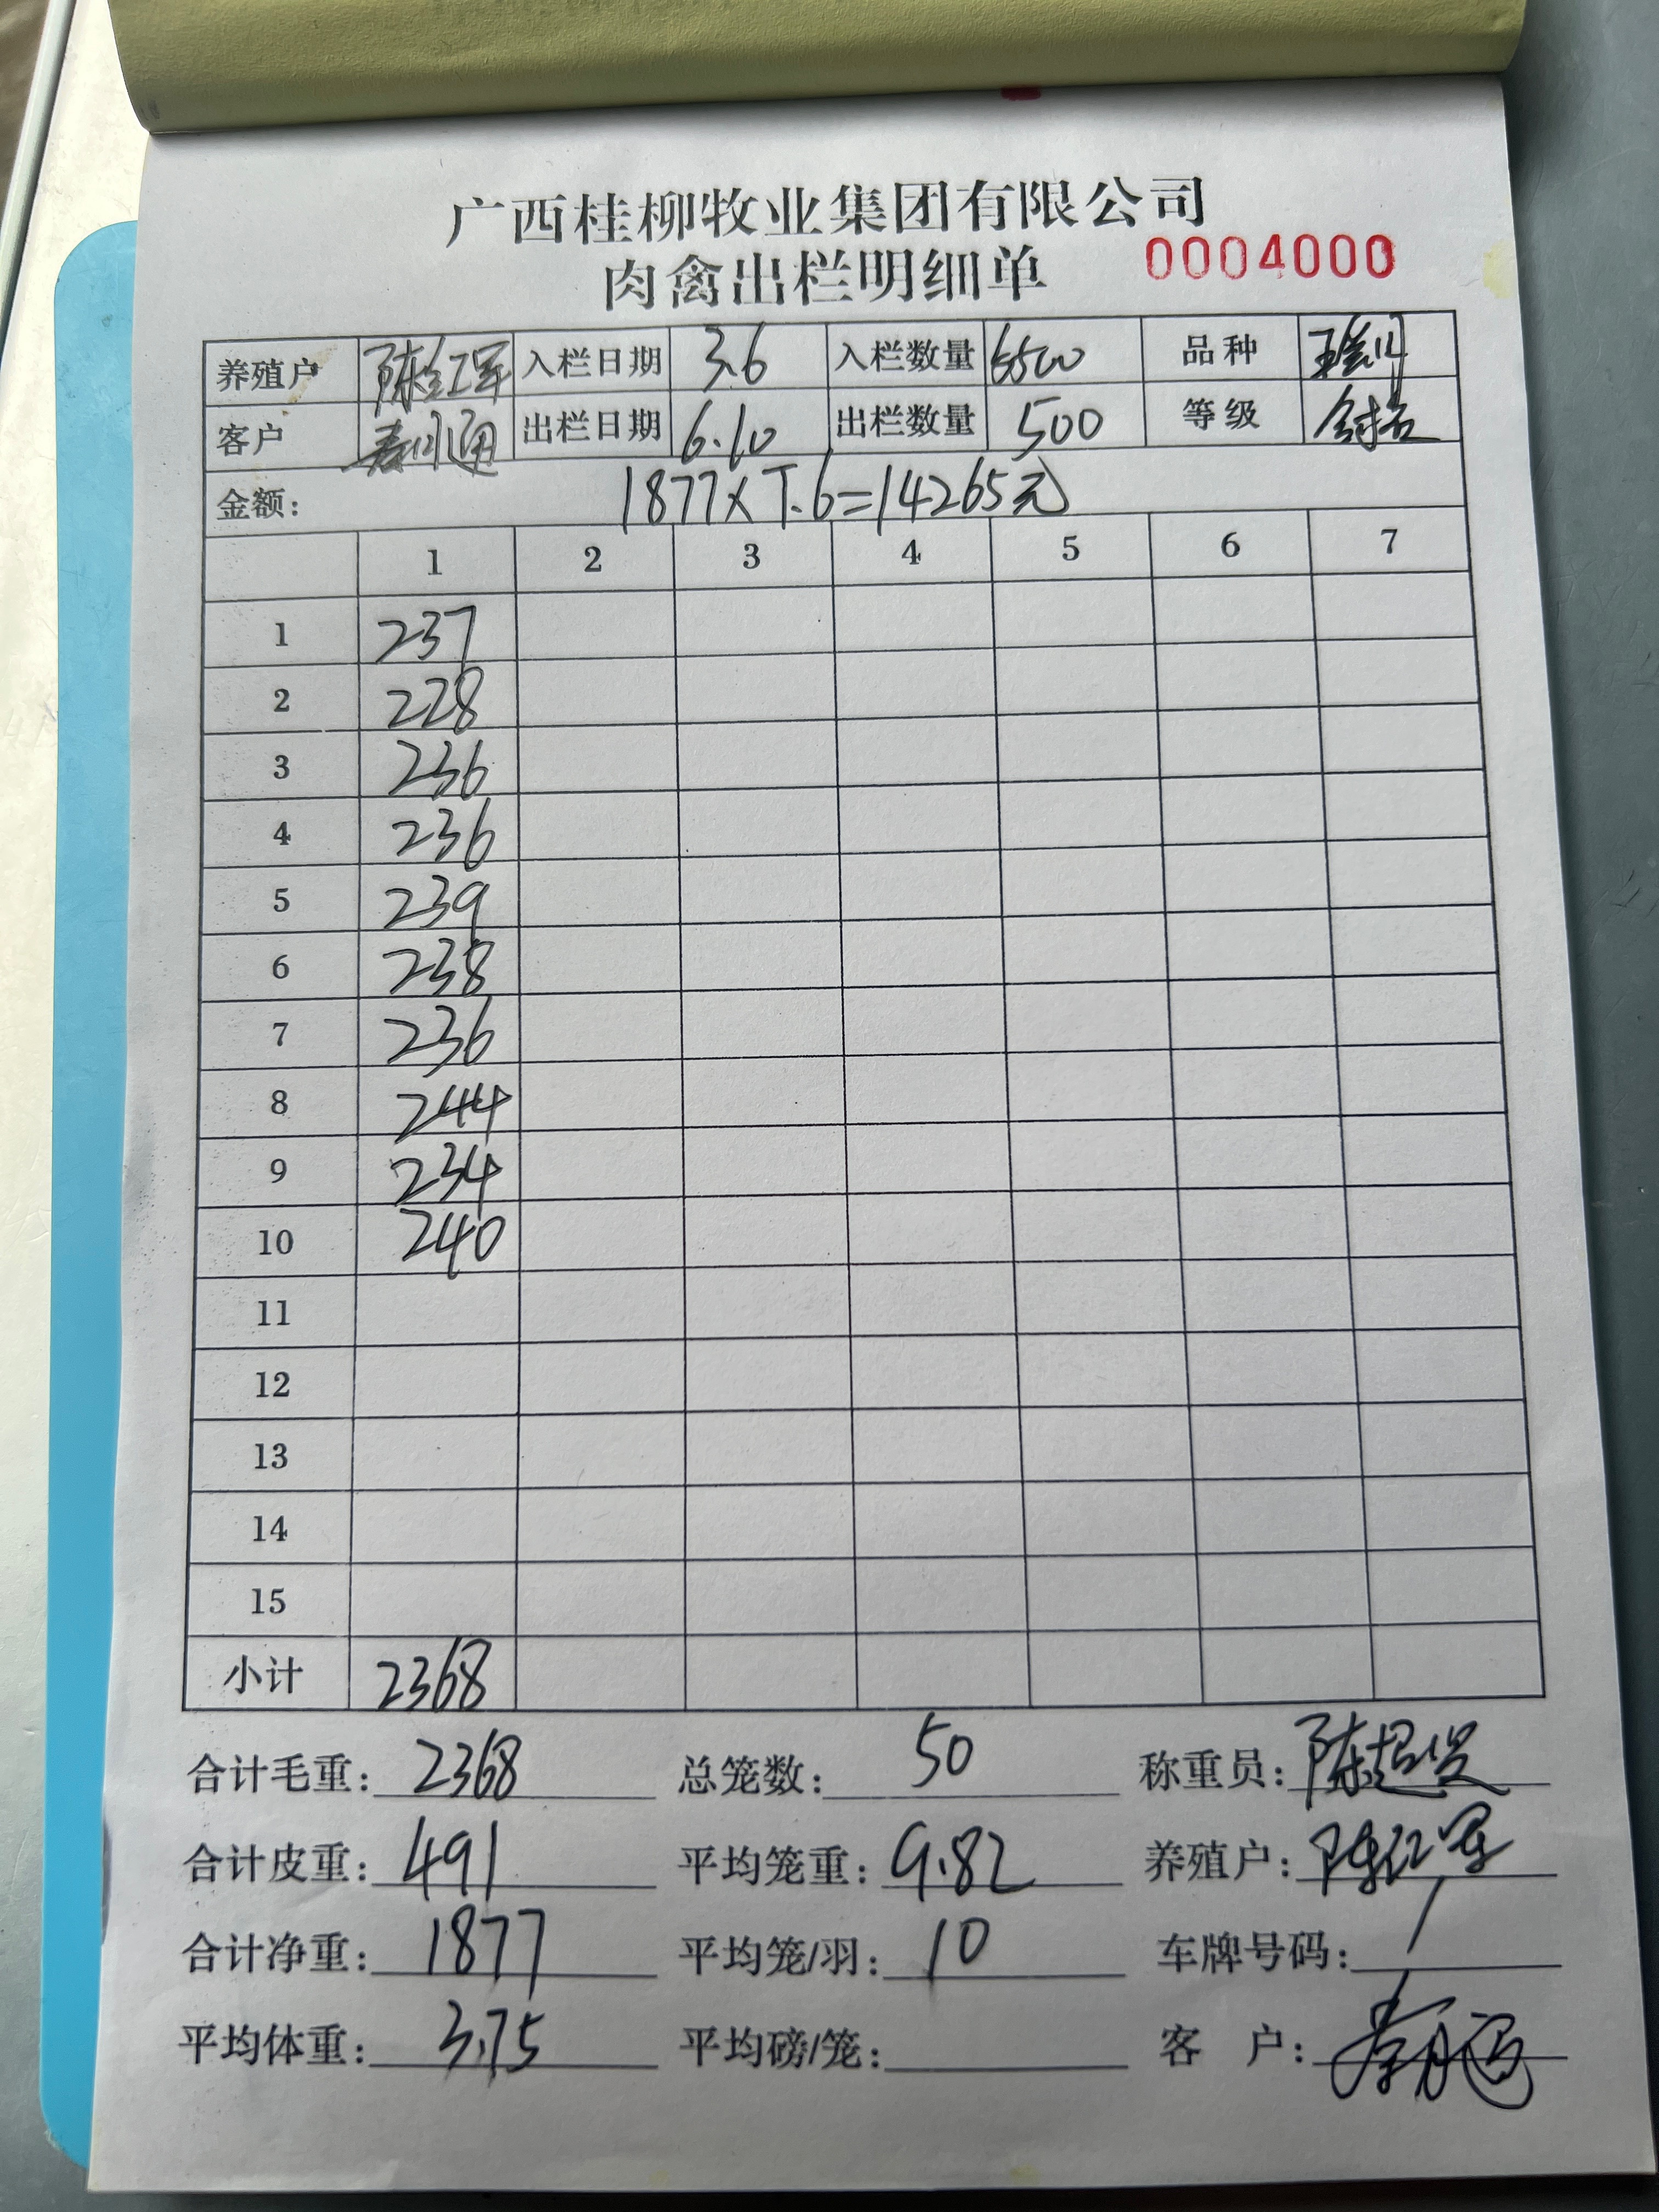 广西桂柳牧业集团有限公司
肉禽出栏明细单 0004000
养殖户 陈红军 入栏日期 3.6 入栏数量 6500 品种
客户 出栏日期 6.10 出栏数量 500 等级
金额: 1877×7.6=14265元
1 2 3 4 5 6 7
1 237
2 228
3 236
4 236
5 239
6 238
7 236
8 244
9 234
10 240
11
12
13
14
15
小计 2368
合计毛重: 2368 总笼数: 50 称重员: 陈超
合计皮重: 491 平均笼重: 9.82 养殖户: 陈红军
合计净重: 1877 平均笼/羽: 10 车牌号码: /
平均体重: 3.75 平均磅/笼: 客 户: